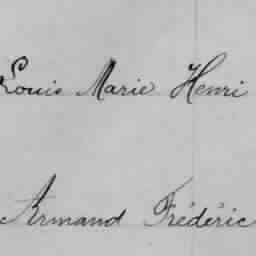 Louis Marie Henri
Armand Frédéric